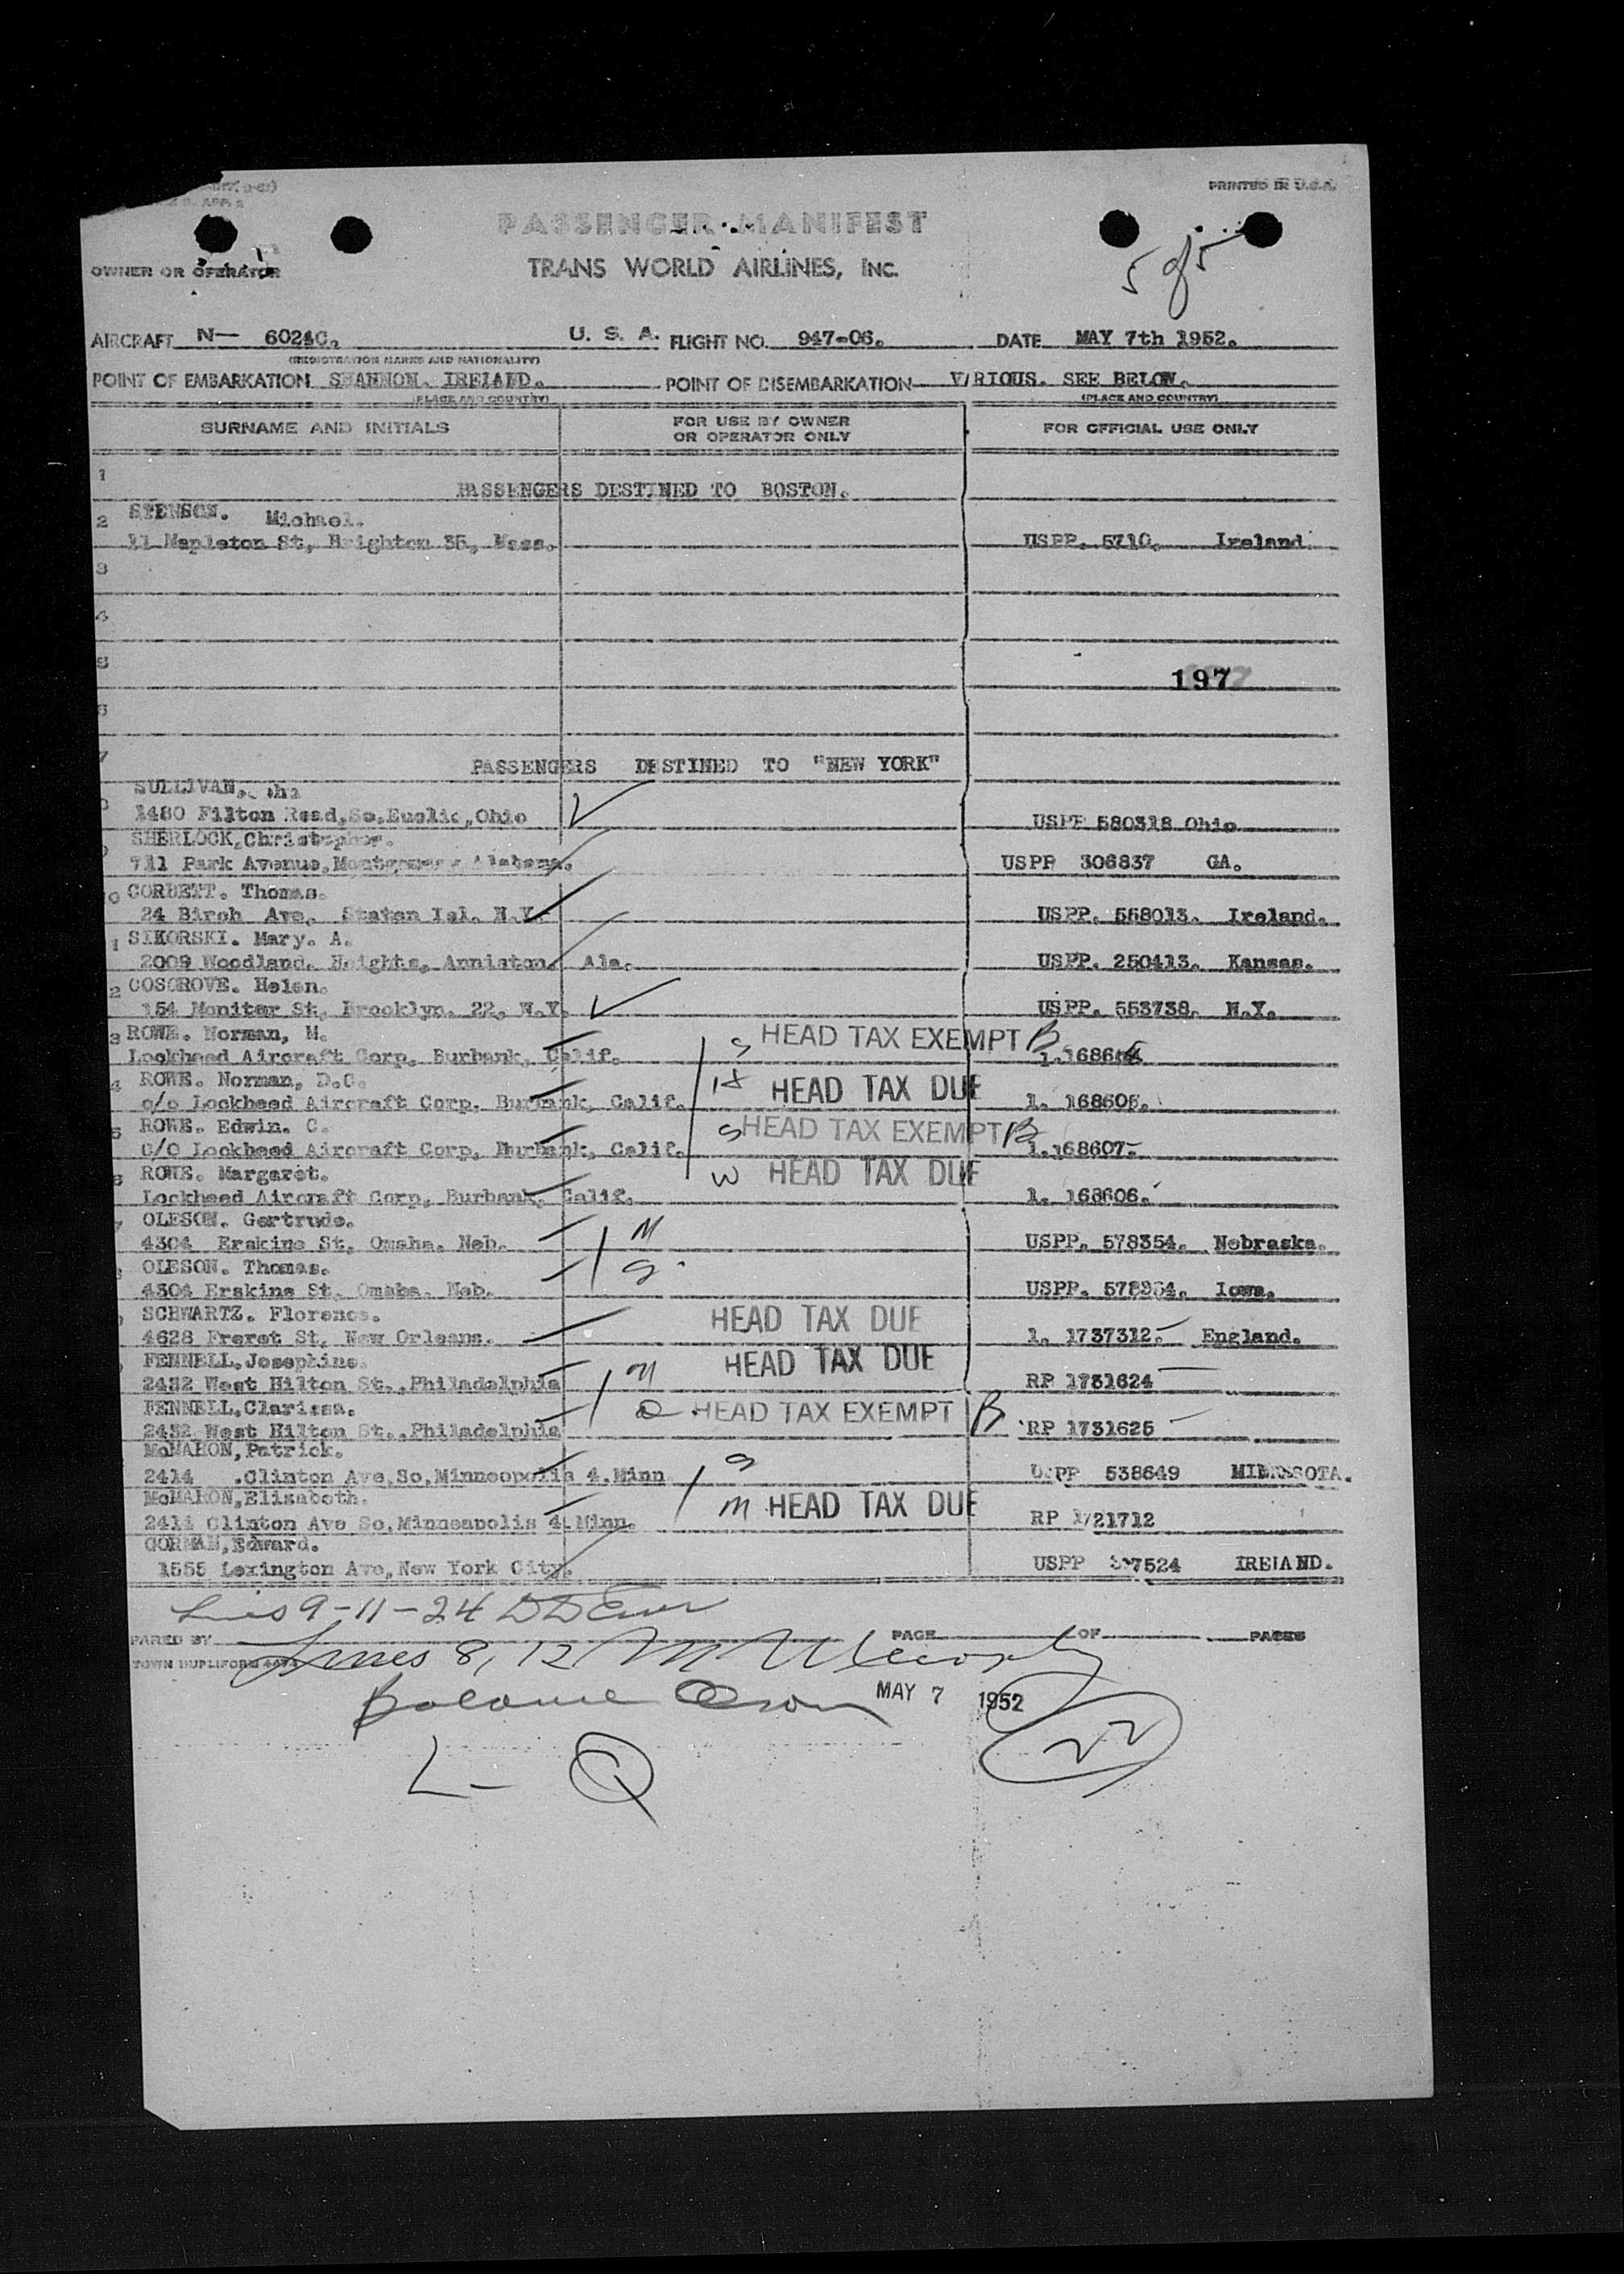 PRINTED IN U.S.A.
PASSENGER MANIFEST
OWNER OR OPERATOR
TRANS WORLD AIRLINES, INC.
5 of 5
AIRCRAFT N— U. S. A. FLIGHT NO. 947-06. DATE MAY 7th 1952.
(REGISTRATION MARKS AND NATIONALITY)
POINT OF EMBARKATION SHANNON. IRELAND. POINT OF DISEMBARKATION V/RIOUS. SEE BELOW.
(PLACE AND COUNTRY) (PLACE AND COUNTRY)
SURNAME AND INITIALS FOR USE BY OWNER OR OPERATOR ONLY FOR OFFICIAL USE ONLY
1
PASSENGERS DESTINED TO BOSTON.
2 STENSON. Michael.
11 Mapleton St, Brighton 35, Mass. USPP. 5710. Ireland.
3
4
5
197
6
7
PASSENGERS DESTINED TO "NEW YORK"
SULLIVAN,
1480 Filton Road,So.Euclid,Ohio USPP 580318 Ohio
SHERLOCK,Christopher.
711 Park Avenue,Montgomery Alabama. USPP 306837 GA.
0 CORBETT. Thomas.
24 Birch Ave. Staten Isl. N.Y. USPP. 568013. Ireland.
1 SIKORSKI. Mary. A.
2009 Woodland. Heights, Anniston. Ala. USPP. 250413. Kansas.
2 COSGROVE. Helen.
154 Moniter St, Brooklyn. 22. N.Y. USPP. 553738. N.Y.
3 ROWE. Norman, M. S HEAD TAX EXEMPT B
Lockheed Aircraft Corp. Burbank, Calif.
4 ROWE. Norman, D.C. H HEAD TAX DUE
c/o Lockheed Aircraft Corp. Burbank, Calif. 1. 168605.
5 ROWE. Edwin. C. S HEAD TAX EXEMPT B
C/O Lockheed Aircraft Corp, Burbank, Calif. 1. 168607-
6 ROWE. Margaret. W HEAD TAX DUE
Lockheed Aircraft Corp, Burbank, Calif. 1. 168606.
7 OLESON. Gertrude. M
4304 Erskine St, Omaha. Neb. USPP. 578354. Nebraska.
OLESON. Thomas. S
4304 Erskine St. Omaha. Neb. USPP. 578354. Iowa.
SCHWARTZ. Florence. HEAD TAX DUE
4628 Freret St, New Orleans. 1. 1737312. England.
FENNELL,Josephine. M HEAD TAX DUE
2432 West Hilton St.,Philadelphia RP 1731624
FENNELL,Clarissa. D HEAD TAX EXEMPT B
2432 West Hilton St.,Philadelphia RP 1731625
McMAHON,Patrick. S
2414 .Clinton Ave,So,Minneopolis 4.Minn USPP 538649 MINNESOTA.
McMAHON,Elisabeth. M HEAD TAX DUE
2414 Clinton Ave So,Minneapolis 4.Minn. RP 1721712
GORMAN,Edward.
1555 Lexington Ave,New York City. USPP IRELAND.
Lines 9-11-24
PARED BY PAGE OF PAGES
Lines 8, 12
Balance
MAY 7 1952
L- Q
22